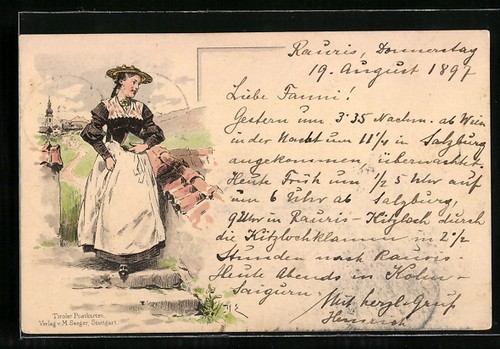 Rauris, Donnerstag
19. August 1897
Liebe Fanni!
Gestern um 3·35 Nachm. ab Wien
in der Nacht um 11¼ in Salzburg
angekommen übernachtet.
Heute Früh um ½5 Uhr auf
um 6 Uhr ab Salzburg,
9 Uhr in Rauris-Kitzloch durch
die Kitzlochklamm in 2½
Stunden nach Rauris.
Heute Abends in Kolm-
Saigurn. Mit herzl. Gruß
Heinrich
Tiroler Postkarten.
Verlag v. M. Seeger, Stuttgart.